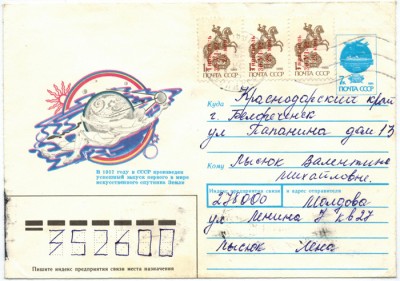 ПОЧТА СССР
ПОЧТА СССР
ПОЧТА СССР
7к
ПОЧТА СССР
Куда Краснодарский край
г. Белореченск
ул Папанина дом 13
Кому Лысюк Валентине
Михайловне.
В 1957 году в СССР произведен
успешный запуск первого в мире
искусственного спутника Земли
Индекс предприятия связи и адрес отправителя
278000 Молдова
ул Ленина 7 кв 27
Лысюк Лена
352600
Пишите индекс предприятия связи места назначения